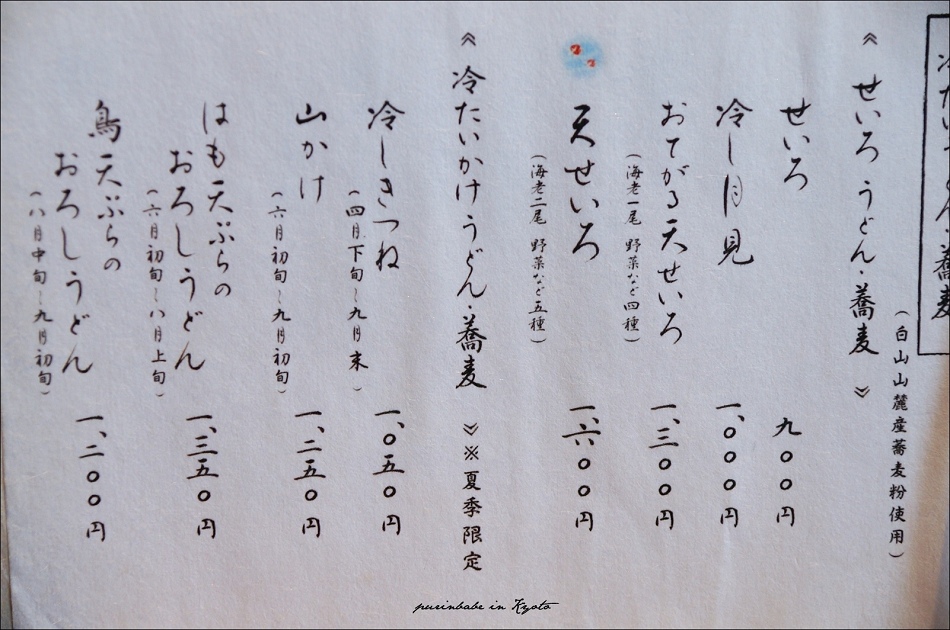 冷たいうどん・蕎麦
(白山山麓産蕎麦粉使用)
《せいろ うどん・蕎麦》
せいろ 九〇〇円
冷し月見 一、〇〇〇円
おてがる天せいろ 一、三〇〇円
(海老一尾 野菜など四種)
天せいろ 一、六〇〇円
(海老二尾 野菜など五種)
《冷たいかけ うどん・蕎麦》※夏季限定
冷しきつね 一、〇五〇円
(四月下旬〜九月末)
山かけ 一、二五〇円
(六月初旬〜九月初旬)
はも天ぷらの
おろしうどん 一、三五〇円
(六月初旬〜八月上旬)
鳥天ぷらの
おろしうどん 一、二〇〇円
(八月中旬〜九月初旬)
purinbabe in Kyoto